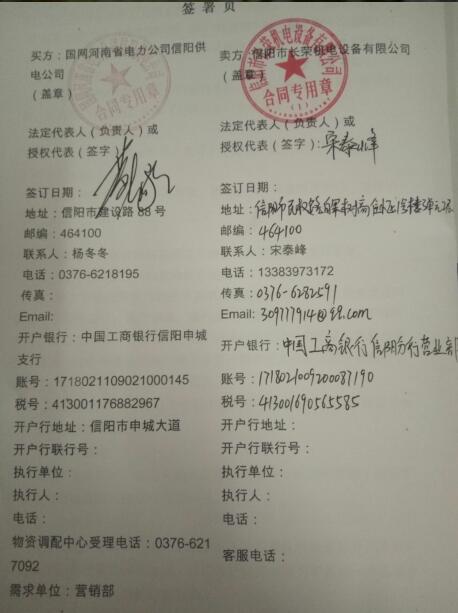 签署页
买方：国网河南省电力公司信阳供
电公司
（盖章）
法定代表人（负责人）或
授权代表（签字）：
签订日期：
地址：信阳市建设路 88 号
邮编：464100
联系人：杨冬冬
电话：0376-6218195
传真：
Email:
开户银行：中国工商银行信阳申城
支行
账号：1718021109021000145
税号：413001176882967
开户行地址：信阳市申城大道
开户行联行号：
执行单位：
执行人：
电话：
物资调配中心受理电话：0376-621
7092
需求单位：营销部
卖方：信阳市长荣机电设备有限公司
（盖章）
信阳市长荣机电设备有限公司
合同专用章
（1）
合同专用章
法定代表人（负责人）或
授权代表（签字）：宋泰峰
签订日期：
地址：信阳市民权路
邮编：464100
联系人：宋泰峰
电话：13383973172
传真：0376-6282591
Email: 309777914@qq.com
开户银行：中国工商银行信阳分行营业部
账号：1718021009200087190
税号：413001690565585
开户行地址：
开户行联行号：
执行单位：
执行人：
电话：
客服电话：